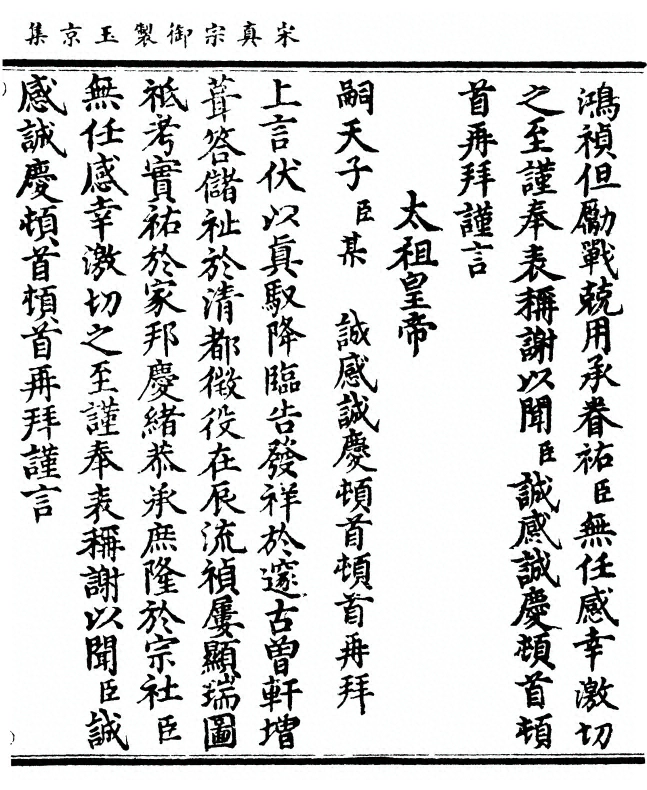 宋真宗御製玉京集
鴻禎但勵戰兢用承眷祐臣無任感幸激切
之至謹奉表稱謝以聞臣誠感誠慶頓首頓
首再拜謹言
太祖皇帝
嗣天子臣某 誠感誠慶頓首頓首再拜
上言伏以真馭降臨告發祥於邃古曾軒增
葺答儲祉於清都徵役在辰流禎屢顯瑞圖
祗考實祐於家邦慶緒恭承庶隆於宗社臣
無任感幸激切之至謹奉表稱謝以聞臣誠
感誠慶頓首頓首再拜謹言